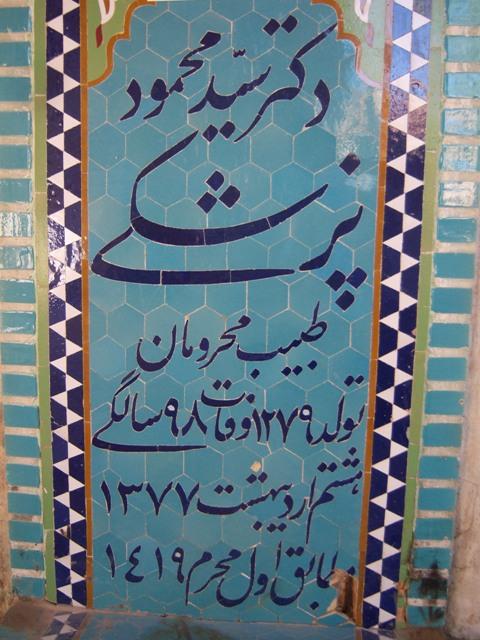 دکتر سیّد محمود
پزشکی
طبیب محرومان
تولد ۱۲۷۹ وفات ۹۸ سالگی
هشتم اردیبهشت ۱۳۷۷
مطابق اول محرم ۱۴۱۹